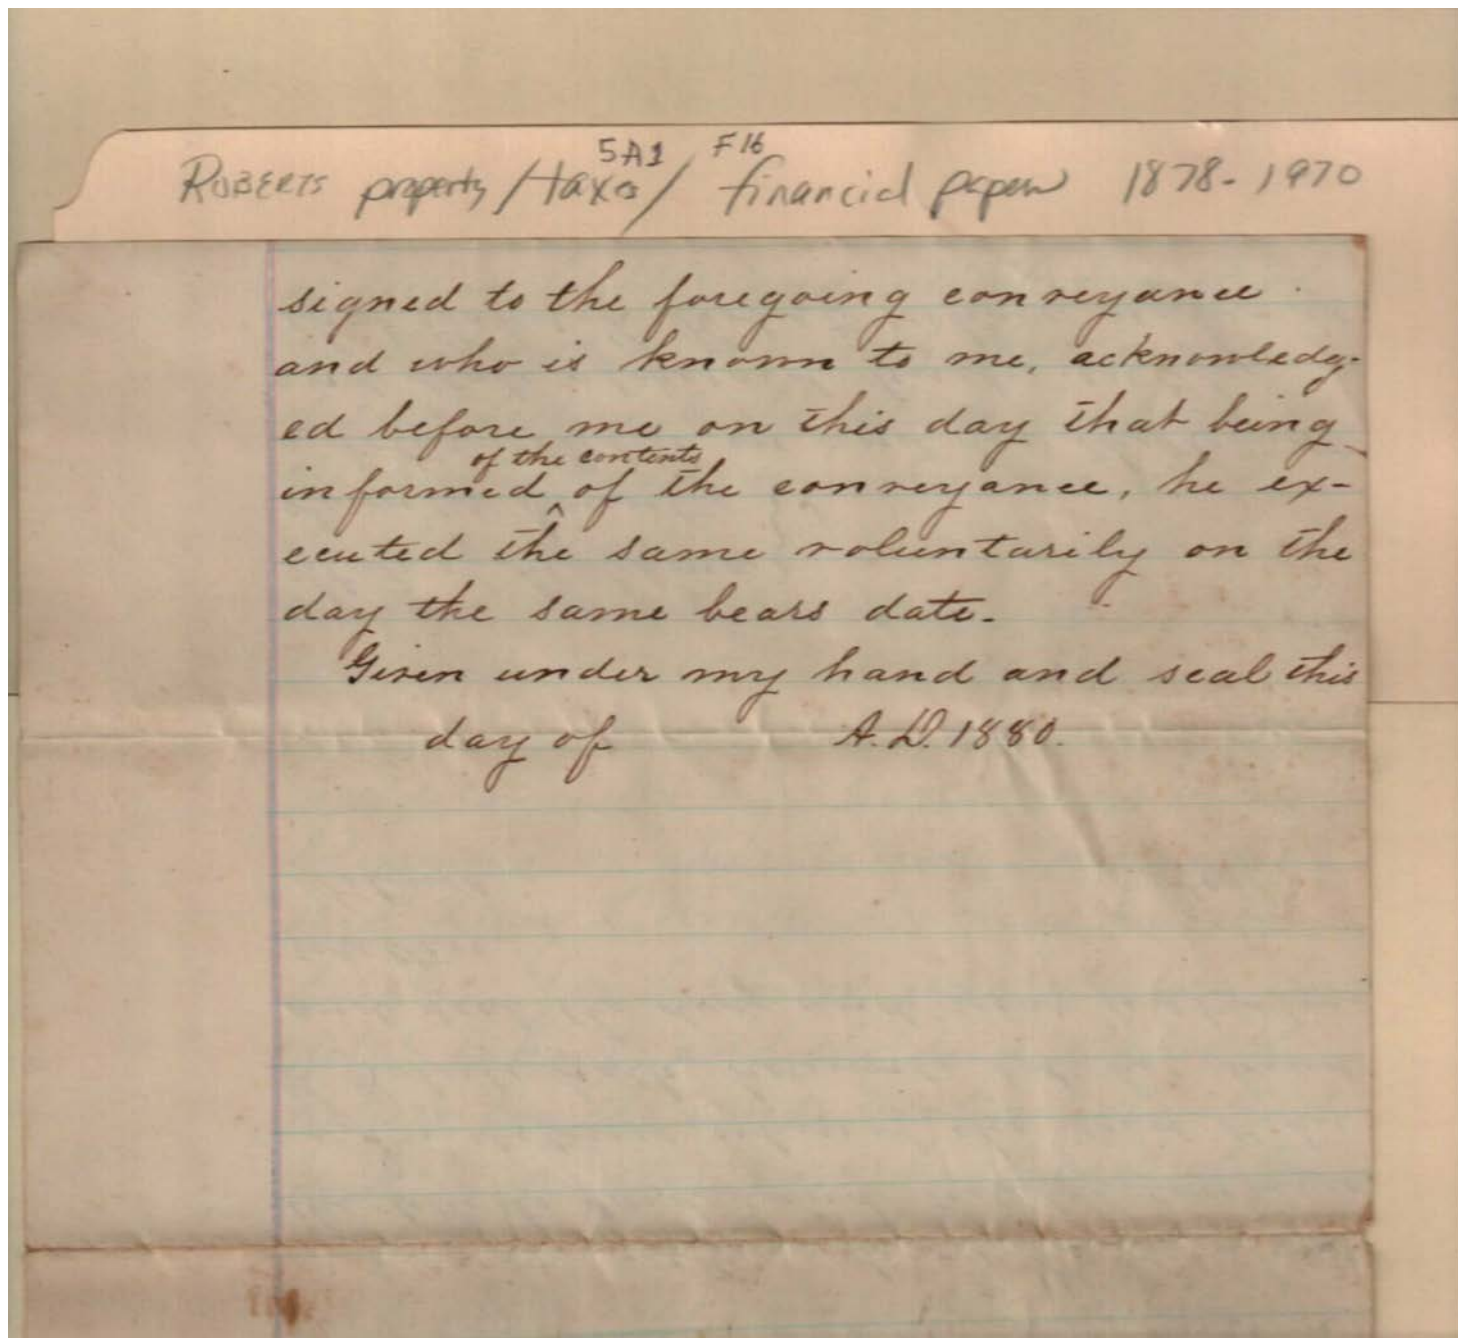 5A1 F16
ROBERTS property/taxes/ financial papers 1878-1970
signed to the foregoing conveyance.
and who is known to me, acknowledg-
ed before me on this day that being
of the contents
informed ^ of the conveyance, he ex-
ecuted the same voluntarily on the
day the same bears date.
Given under my hand and seal this
day of A.D. 1880.